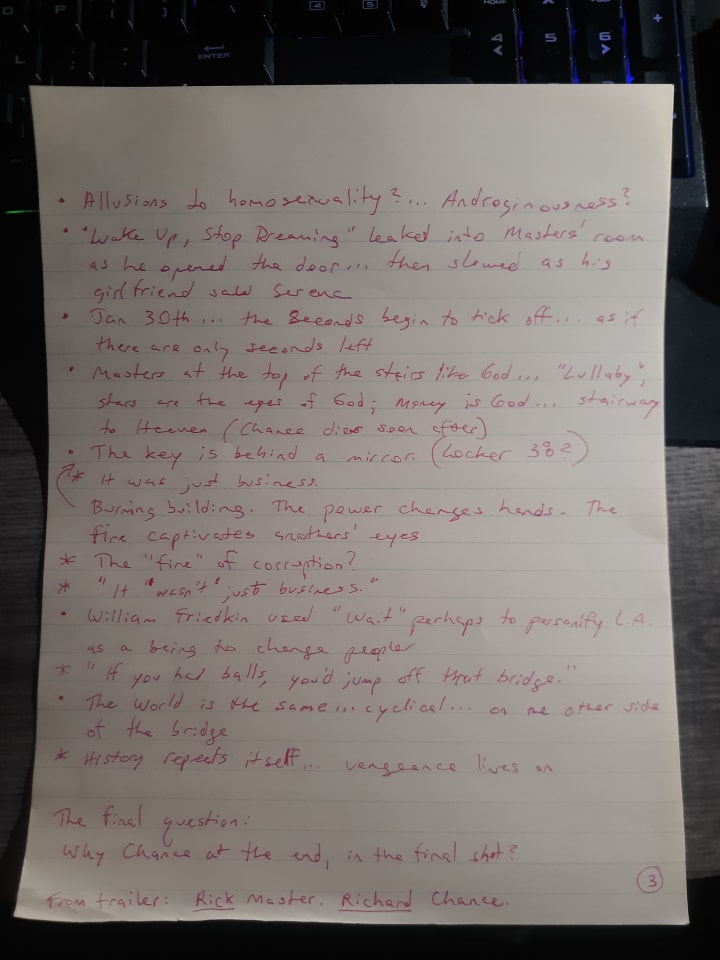 • Allusions to homosexuality?... Androginousness?
• "Wake Up, Stop Dreaming" leaked into Masters' room
as he opened the door... then slowed as his
girlfriend saw Serena
• Jan 30th... the seconds begin to tick off... as if
there are only seconds left
• Masters at the top of the stairs like God... "Lullaby",
stars are the eyes of God; money is God... stairway
to Heaven (Chance dies soon after)
• The key is behind a mirror. (Locker 38?)
* It was just business.
Burning building. The power changes hands. The
fire captivates anothers' eyes
* The "fire" of corruption?
* "It "wasn't" just business."
• William Friedkin used "Wait" perhaps to personify L.A.
as a being to change people
* "If you had balls, you'd jump off that bridge."
• The world is the same... cyclical... on the other side
of the bridge
* History repeats itself... vengeance lives on
The final question:
Why Chance at the end, in the final shot?
3
From trailer: Rick Master. Richard Chance.
ENTER
4
5
6
+